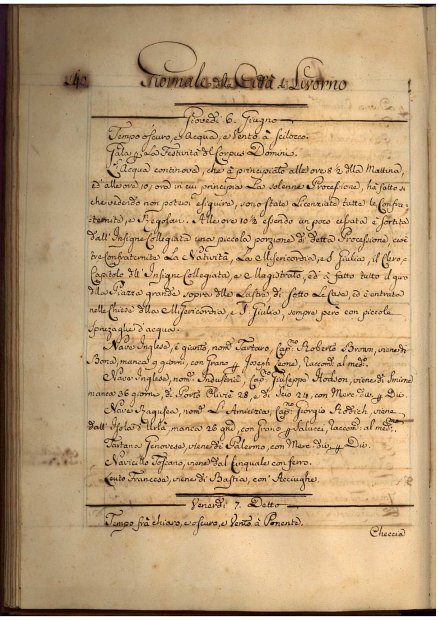 140
Giornale della Città di Livorno
Giovedì 6. Giugno
Tempo oscuro, ed Acqua, e Vento à Scilocco.
Gala p. La Festività del Corpus Domini.
L'Acqua continova, che à principiato alle ore 8 1/2 della Mattina,
ed alle ore 10, ora in cui principia La solenne Processione, ha fatto si
che vedendo non potersi esiguire, sono state Licenziate tutte le Confra-
ternite, e Fregosari. Alle ore 10 1/2 essendo un poco cessata è sortita
dall'Insigne Collegiata una piccola porzione di detta Processione, cioè
tre Confraternite La Natività, La Misericordia, e S. Giulia, il Clero,
Capitolo dell'Insigne Collegiata, e Magistrato, ed à fatto tutto il giro
della Piazza grande sopra delle Lastre di sotto Le Case, ed è entrata
nelle Chiese della Misericordia, e S. Giulia, sempre però con piccole
spruzaglie d'acqua.
Nave Inglese, è giunto, nom. Tartaro, Cap. Roberto Brown, viene di
Bona, manca 9 giorni, con Grano p. Joseph Leone, raccom. al med.
Nave Inglese, nom. Industrie, Cap. Giuseppe Hodson, viene di Smirne
manca 36 giorni, di Porto Olivie 28, e di Scio 24, con Merc. div. p. Div.
Nave Ragusea, nom. L'Amicizia, Cap. Giorgio Radich, viene
dall'Isola d'Elba, manca 20 gni, con Grano p. Salucci, raccom. al med.
Tartana Genovese, viene di Palermo, con Merc. div. p. Div.
Navicello Toscano, viene dal Cinquale con ferro.
Leuto Francese, viene di Bastia, con Acciughe.
Venerdì 7. Detto
Tempo frà chiaro, e oscuro, e Vento à Ponente.
Checcia